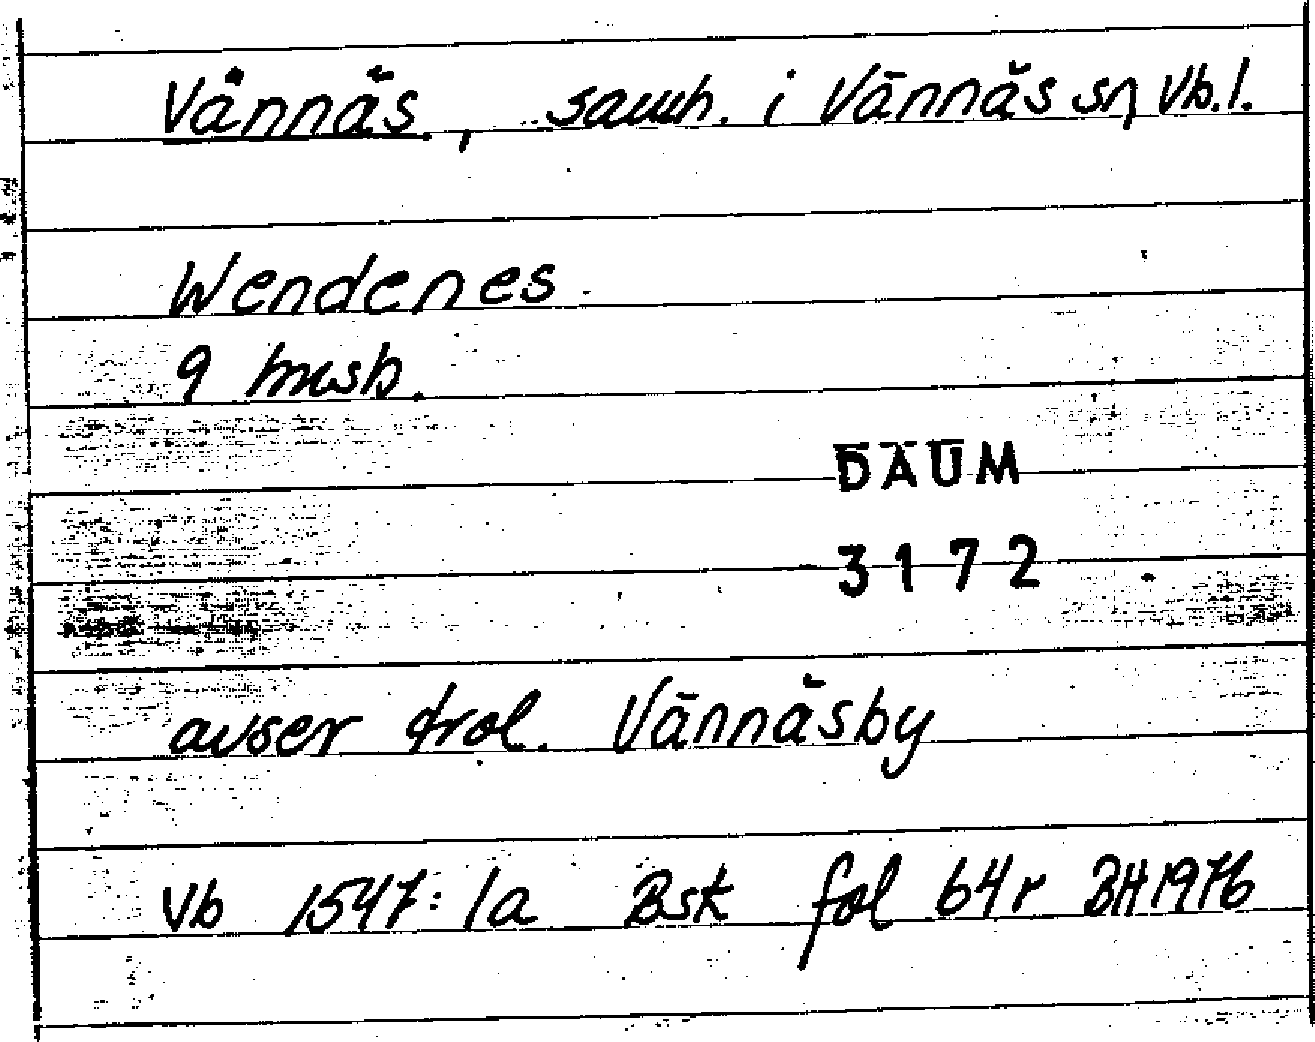 Vännäs., samh. i Vännäs sn Vb.l.
Wendenes
9 mœsb.
DAUM
3172
avser trol. Vännäsby
Vb 1547:1a Bsk fol 64r BH1976